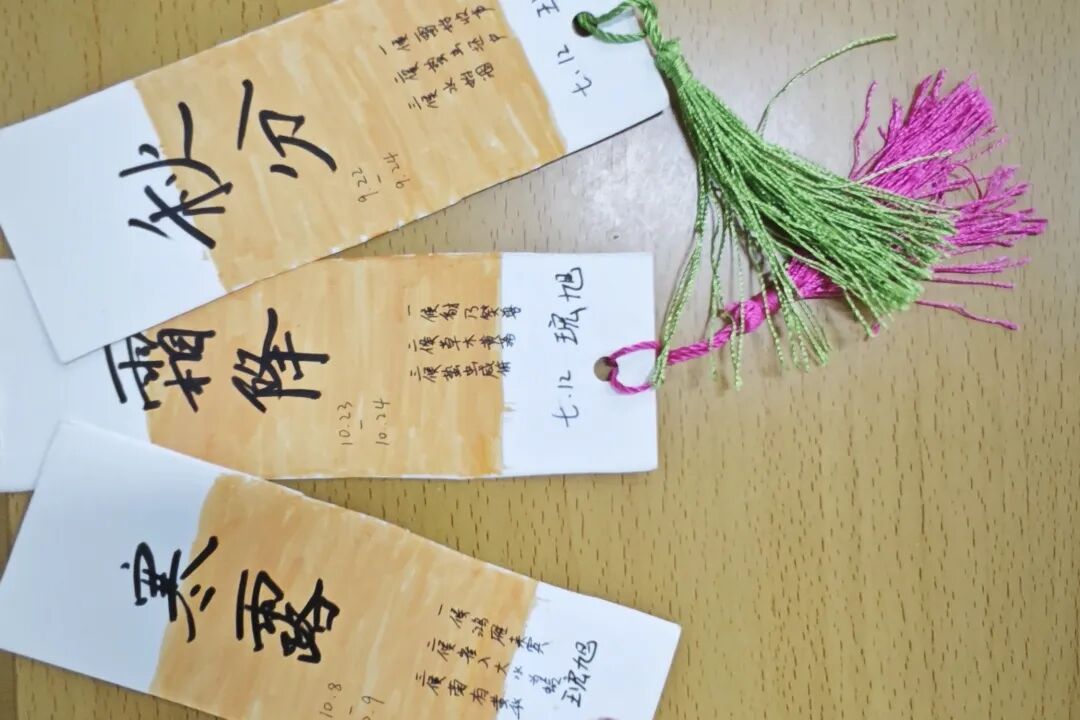 秋分
9.22
-
9.24
一候雷始收声
二候
三候水始涸
七.12
霜降
10.23
-
10.24
一候豺乃祭兽
二候草木黄落
三候蛰虫咸俯
七.12 琼旭
寒露
10.8
-
一候鸿雁来宾
二候雀入大水
三候菊有黄